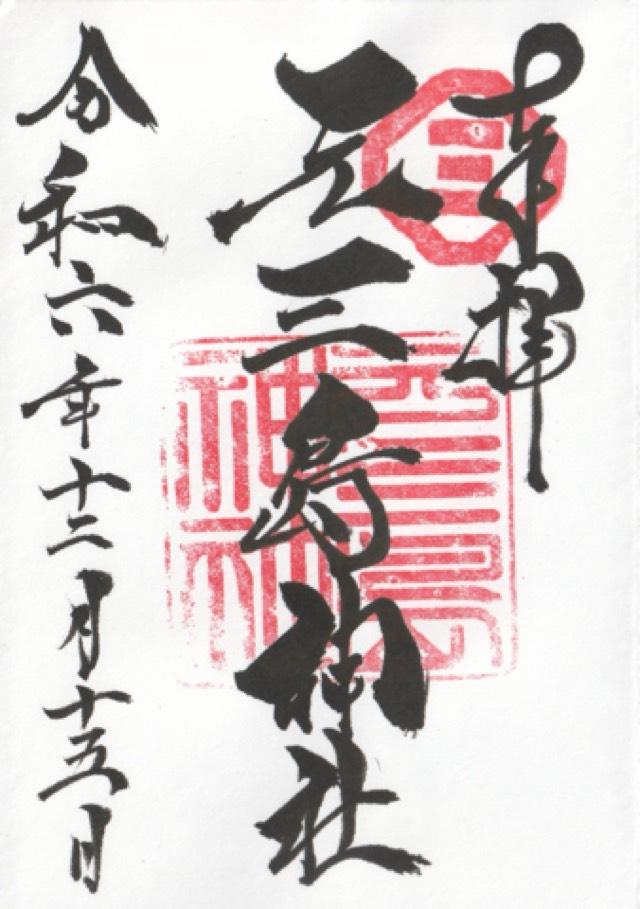 奉拝
元三島神社
令和六年十二月十五日